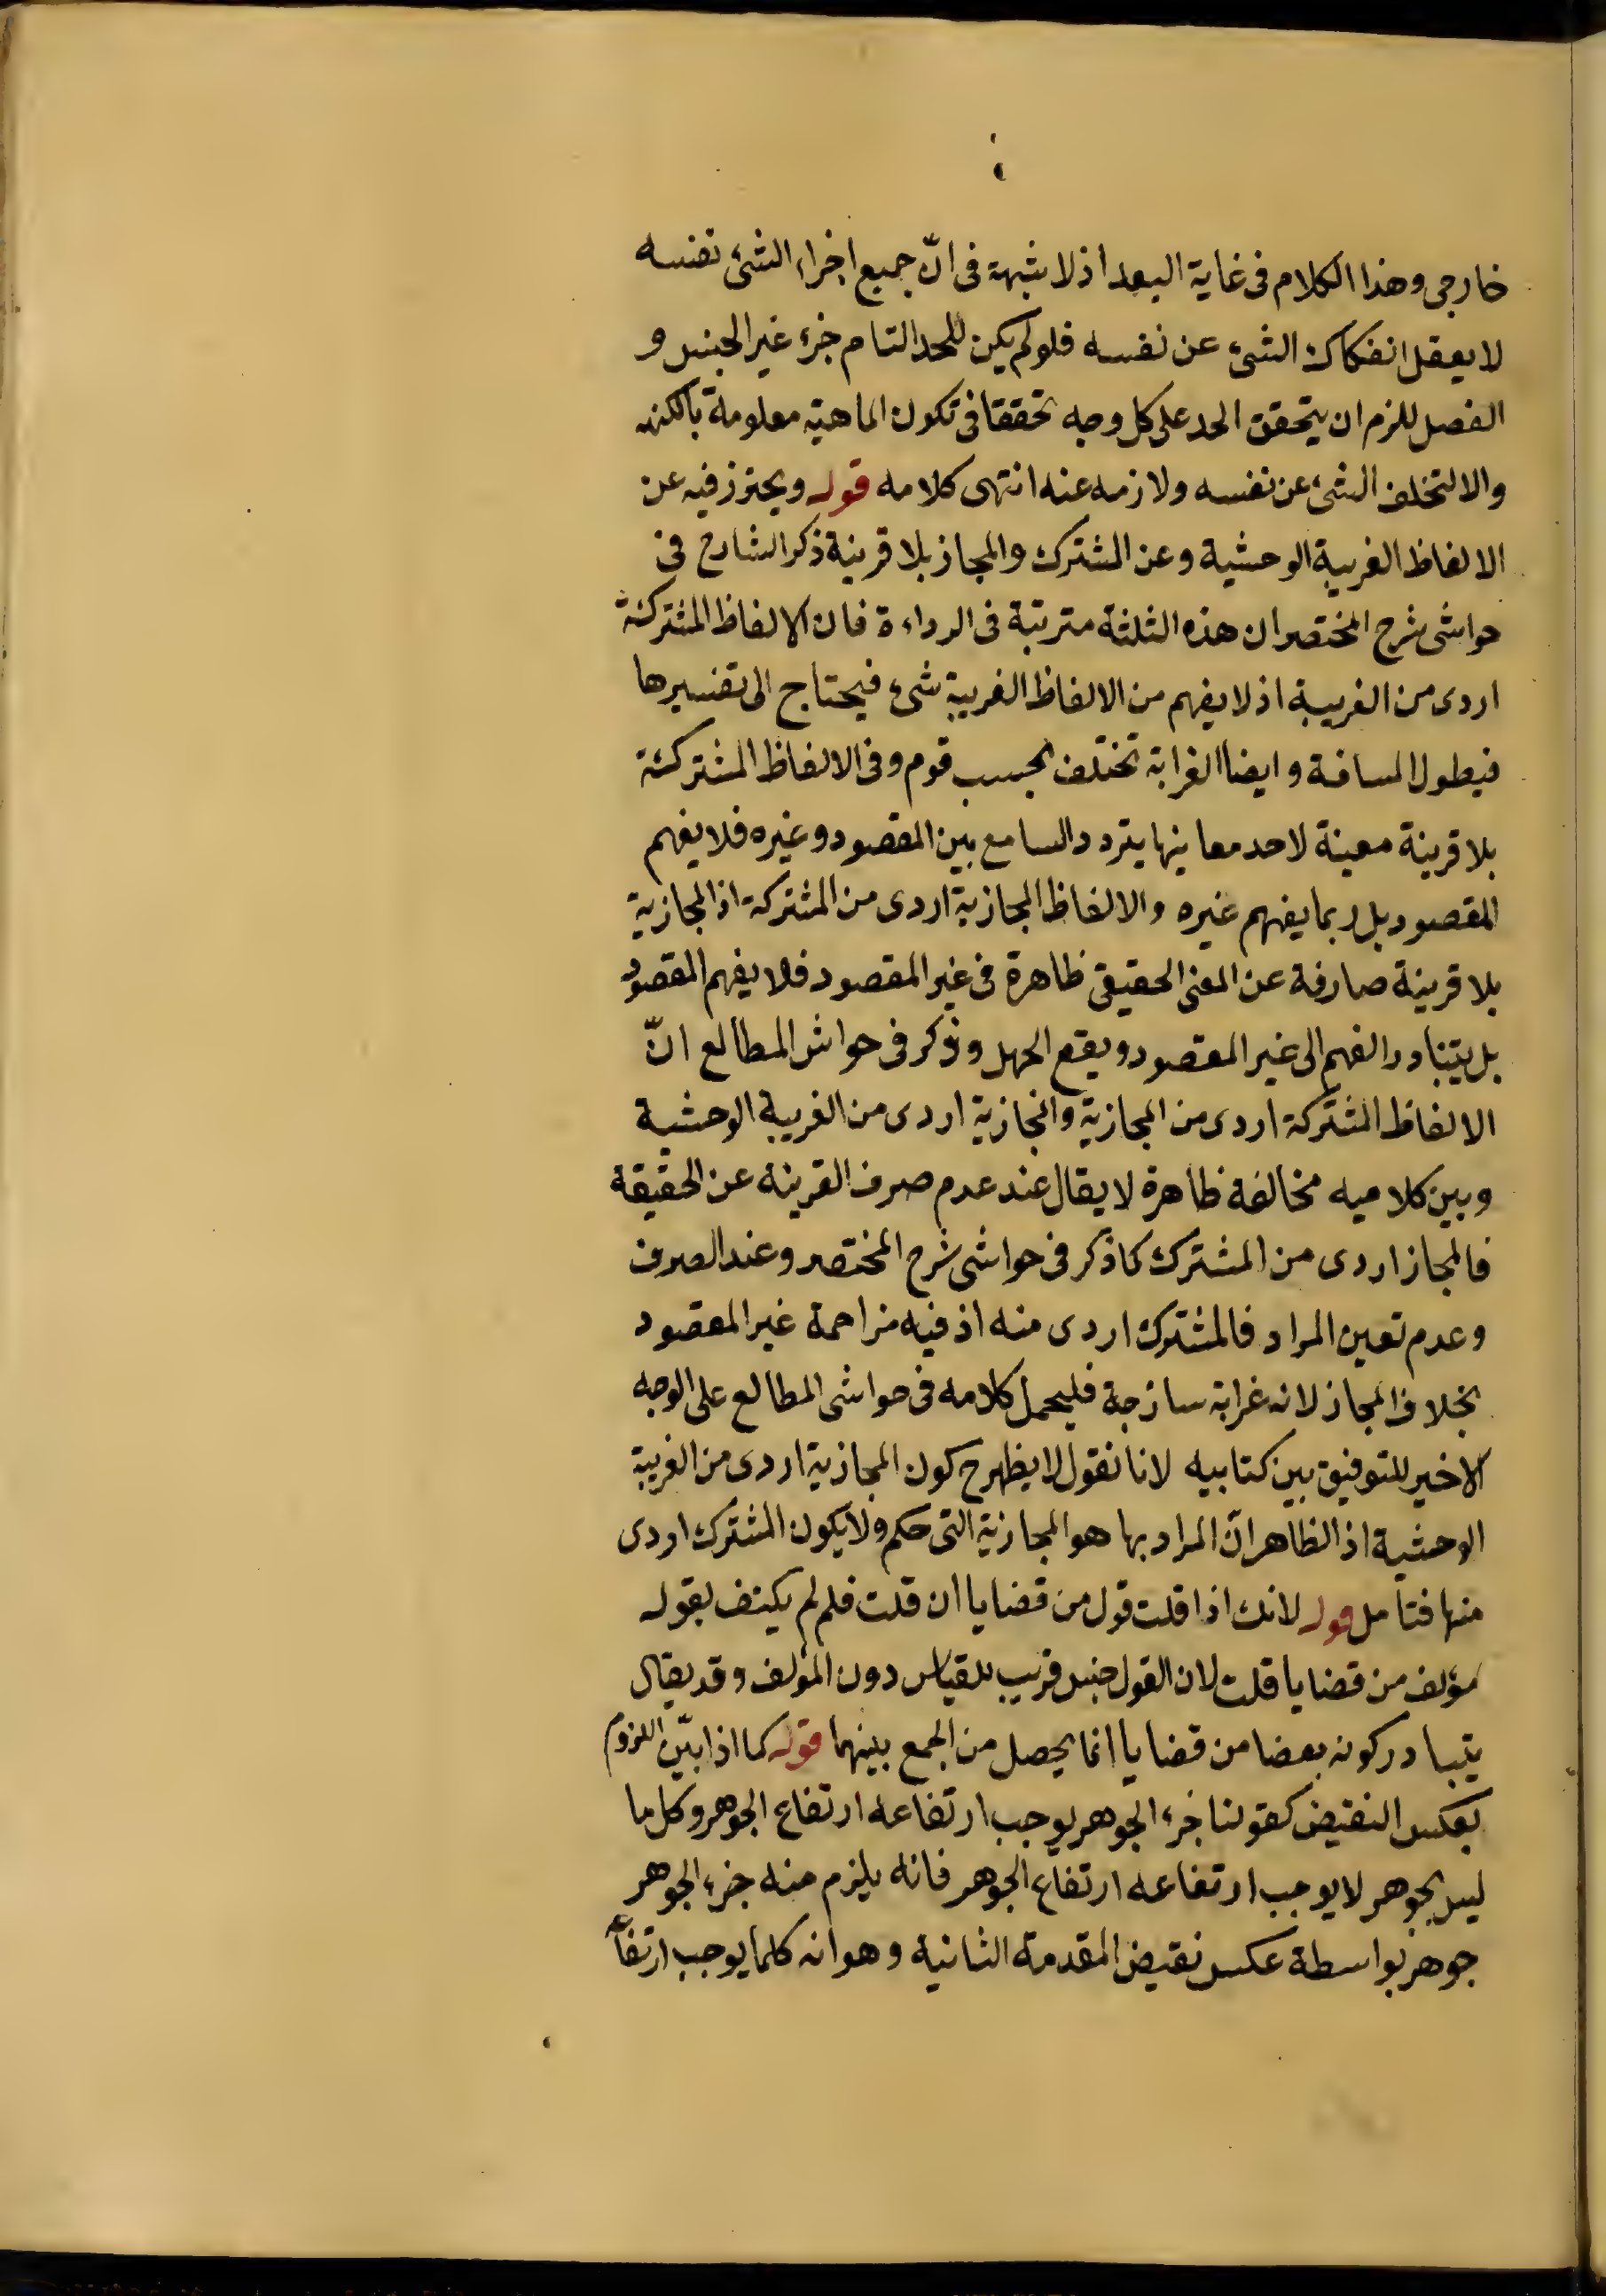 خارجى وهذا الكلام فى غاية البعد اذ لا شبهة فى انّ جميع اجزاء الشئ نفسه
لا يعقل انفكاك الشئ عن نفسه فلو لم يكن للحد التام جزء غير الجنس و
الفصل للزم ان يتحقق الحد على كل وجه تحققا فى تكون الماهية معلومة بالكنه
والا لتخلف الشئ عن نفسه ولازمه عنه انتهى كلامه قوله ويحترز فيه عن
الالفاظ الغريبة الوحشية وعن المشترك والمجاز بلا قرينة ذكر الشارح فى
حواشى شرح المختصر ان هذه الثلثة مترتبة فى الرداءة فان الالفاظ المشتركة
اردى من الغريبة اذ لا يفهم من الالفاظ الغريبة شئ فيحتاج الى تفسيرها
فيطول المسافة وايضا الغرابة تختلف بحسب قوم وفى الالفاظ المشتركة
بلا قرينة معينة لاحد معانيها يتردد السامع بين المقصود وغيره فلا يفهم
المقصود بل ربما يفهم غيره والالفاظ المجازية اردى من المشتركة اذ المجازية
بلا قرينة صارفة عن المعنى الحقيقى ظاهرة فى غير المقصود فلا يفهم المقصود
بل يتبادر الفهم الى غير المقصود ويقع الجهل وذكر فى حواش المطالع انّ
الالفاظ المشتركة اردى من المجازية والمجازية اردى من الغريبة الوحشية
وبين كلاميه مخالفة ظاهرة لا يقال عند عدم صرف القرينة عن الحقيقة
فالمجاز اردى من المشترك كما ذكر فى حواشى شرح المختصر وعند الصرف
وعدم تعين المراد فالمشترك اردى منه اذ فيه مزاحمة غير المقصود
بخلاف المجاز لانه غرابة ساذجة فليحمل كلامه فى حواشى المطالع على الوجه
الاخير للتوفيق بين كتابيه لانا نقول لا يظهر ح كون المجازية اردى من الغريبة
الوحشية اذ الظاهر انّ المراد بها هو المجازية التى حكم ولا يكون المشترك اردى
منها فتامل قوله لانك اذا قلت قول من قضايا ان قلت فلم لم يكتف بقوله
مؤلف من قضايا قلت لان القول جنس قريب للقياس دون المؤلف وقد يقال
يتبادر كونه بعضا من قضايا انما يحصل من الجمع بينهما قوله كما اذا بيّن اللزوم
بعكس النقيض كقولنا جزء الجوهر يوجب ارتفاعه ارتفاع الجوهر وكل ما
ليس بجوهر لا يوجب ارتفاعه ارتفاع الجوهر فانه يلزم منه جزء الجوهر
جوهر بواسطة عكس نقيض المقدمة الثانية وهو انه كلما يوجب ارتفاعه